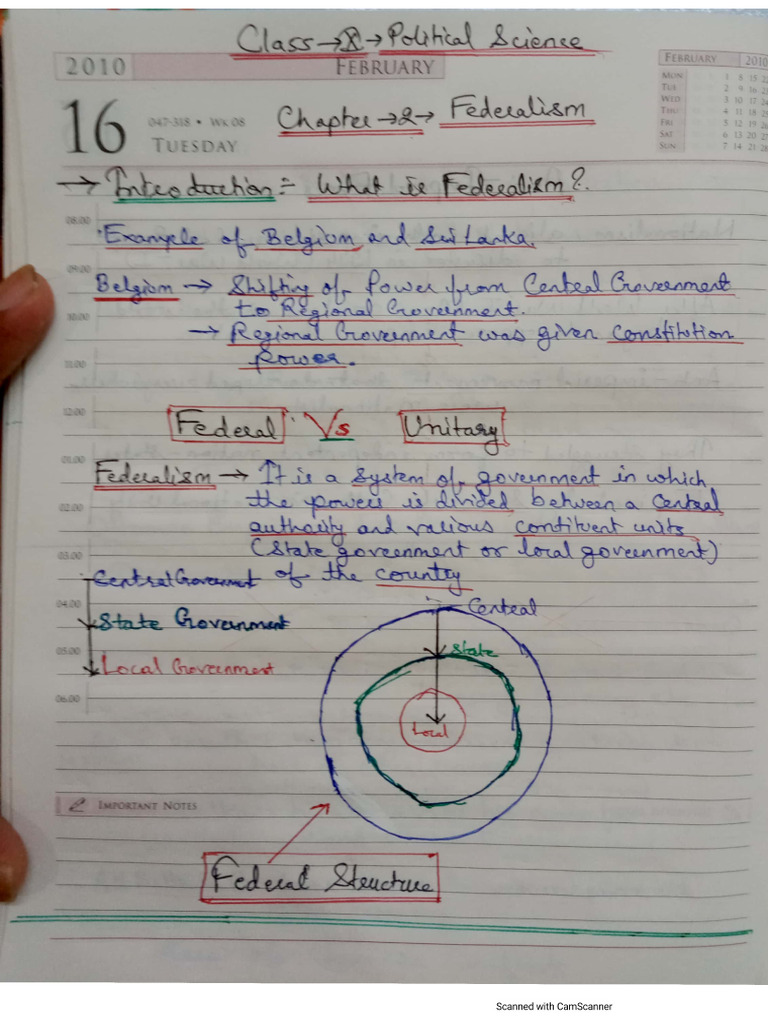 Class → X → Political Science
2010 FEBRUARY
FEBRUARY 2010
16 047-318 • WK 08
TUESDAY
Chapter → 2 → Federalism
MON 1 8 15 22
TUE 2 9 16
WED 3 10 17 24
THU 4 11 18
FRI 5 12 19
SAT 6 13 20 27
SUN 7 14 21 28
→ Introduction:- What is Federalism?.
08.00
Example of Belgium and Sri Lanka.
09.00
Belgium → Shifting of Power from Central Government
to Regional Government.
10.00
→ Regional Government was given constitution
power.
11.00
12.00
Federal Vs Unitary
01.00
Federalism → It is a system of government in which
the powers is divided between a Central
02.00
authority and various contituent units
(State government or local government)
03.00
Central Government of the country
04.00
Central
State Government
05.00
State
Local Government
06.00
Local
IMPORTANT NOTES
Federal Structure
Scanned with CamScanner